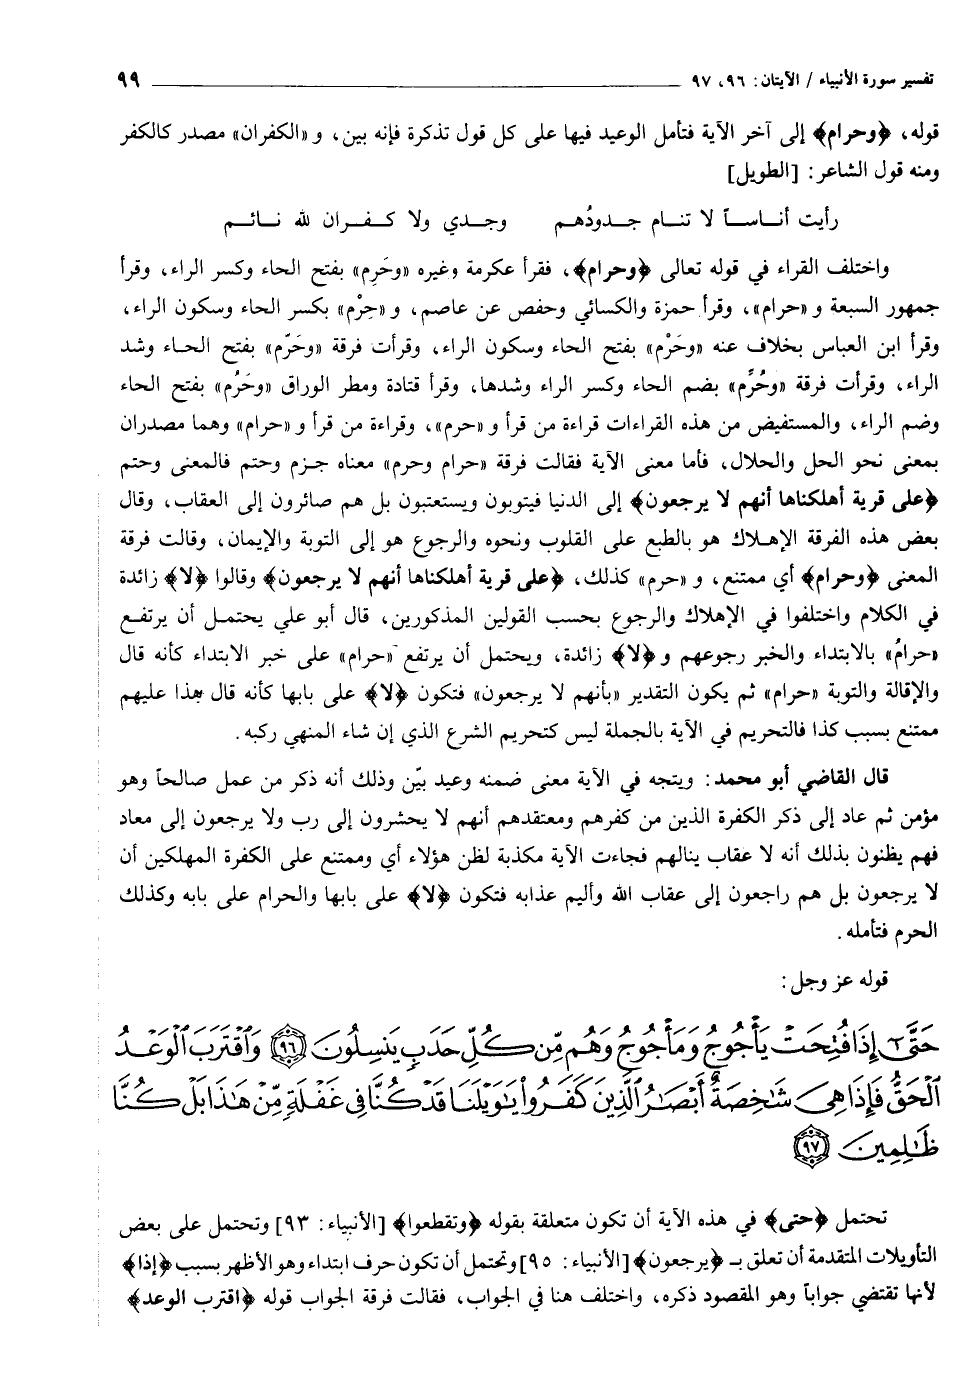 تفسير سورة الأنبياء / الآيتان: ٩٦، ٩٧ ٩٩
قوله، ﴿وحرام﴾ إلى آخر الآية فتأمل الوعيد فيها على كل قول تذكرة فإنه بين، و «الكفران» مصدر كالكفر
ومنه قول الشاعر: [الطويل]
رأيت أناساً لا تنام جدودُهم وجدي ولا كفران لله نائم
واختلف القراء في قوله تعالى ﴿وحرام﴾، فقرأ عكرمة وغيره «وحَرِم» بفتح الحاء وكسر الراء، وقرأ
جمهور السبعة و «حرام»، وقرأ حمزة والكسائي وحفص عن عاصم، و «حِرْم» بكسر الحاء وسكون الراء،
وقرأ ابن العباس بخلاف عنه «وحَرْم» بفتح الحاء وسكون الراء، وقرأت فرقة «وحَرّم» بفتح الحاء وشد
الراء، وقرأت فرقة «وحُرِّم» بضم الحاء وكسر الراء وشدها، وقرأ قتادة ومطر الوراق «وحَرُم» بفتح الحاء
وضم الراء، والمستفيض من هذه القراءات قراءة من قرأ و «حرم»، وقراءة من قرأ و «حرام» وهما مصدران
بمعنى نحو الحل والحلال، فأما معنى الآية فقالت فرقة «حرام وحرم» معناه جزم وحتم فالمعنى وحتم
﴿على قرية أهلكناها أنهم لا يرجعون﴾ إلى الدنيا فيتوبون ويستعتبون بل هم صائرون إلى العقاب، وقال
بعض هذه الفرقة الإهلاك هو بالطبع على القلوب ونحوه والرجوع هو إلى التوبة والإيمان، وقالت فرقة
المعنى ﴿وحرام﴾ أي ممتنع، و «حرم» كذلك، ﴿على قرية أهلكناها أنهم لا يرجعون﴾ وقالوا ﴿لا﴾ زائدة
في الكلام واختلفوا في الإهلاك والرجوع بحسب القولين المذكورين، قال أبو علي يحتمل أن يرتفع
«حرامُ» بالابتداء والخبر رجوعهم و﴿لا﴾ زائدة، ويحتمل أن يرتفع «حرام» على خبر الابتداء كأنه قال
والإقالة والتوبة «حرام» ثم يكون التقدير «بأنهم لا يرجعون» فتكون ﴿لا﴾ على بابها كأنه قال هذا عليهم
ممتنع بسبب كذا فالتحريم في الآية بالجملة ليس كتحريم الشرع الذي إن شاء المنهي ركبه.
قال القاضي أبو محمد: ويتجه في الآية معنى ضمنه وعيد بيّن وذلك أنه ذكر من عمل صالحاً وهو
مؤمن ثم عاد إلى ذكر الكفرة الذين من كفرهم ومعتقدهم أنهم لا يحشرون إلى رب ولا يرجعون إلى معاد
فهم يظنون بذلك أنه لا عقاب ينالهم فجاءت الآية مكذبة لظن هؤلاء أي وممتنع على الكفرة المهلكين أن
لا يرجعون بل هم راجعون إلى عقاب الله وأليم عذابه فتكون ﴿لا﴾ على بابها والحرام على بابه وكذلك
الحرم فتأمله.
قوله عز وجل:
حَتَّىٰٓ إِذَا فُتِحَتْ يَأْجُوجُ وَمَأْجُوجُ وَهُم مِّن كُلِّ حَدَبٍ يَنسِلُونَ ٩٦ وَٱقْتَرَبَ ٱلْوَعْدُ
ٱلْحَقُّ فَإِذَا هِىَ شَٰخِصَةٌ أَبْصَٰرُ ٱلَّذِينَ كَفَرُوا۟ يَٰوَيْلَنَا قَدْ كُنَّا فِى غَفْلَةٍ مِّنْ هَٰذَا بَلْ كُنَّا
ظَٰلِمِينَ ٩٧
تحتمل ﴿حتى﴾ في هذه الآية أن تكون متعلقة بقوله ﴿وتقطعوا﴾ [الأنبياء: ٩٣] وتحتمل على بعض
التأويلات المتقدمة أن تعلق بـ ﴿يرجعون﴾ [الأنبياء: ٩٥] وتحتمل أن تكون حرف ابتداء وهو الأظهر بسبب ﴿إذا﴾
لأنها تقتضي جواباً وهو المقصود ذكره، واختلف هنا في الجواب، فقالت فرقة الجواب قوله ﴿اقترب الوعد﴾